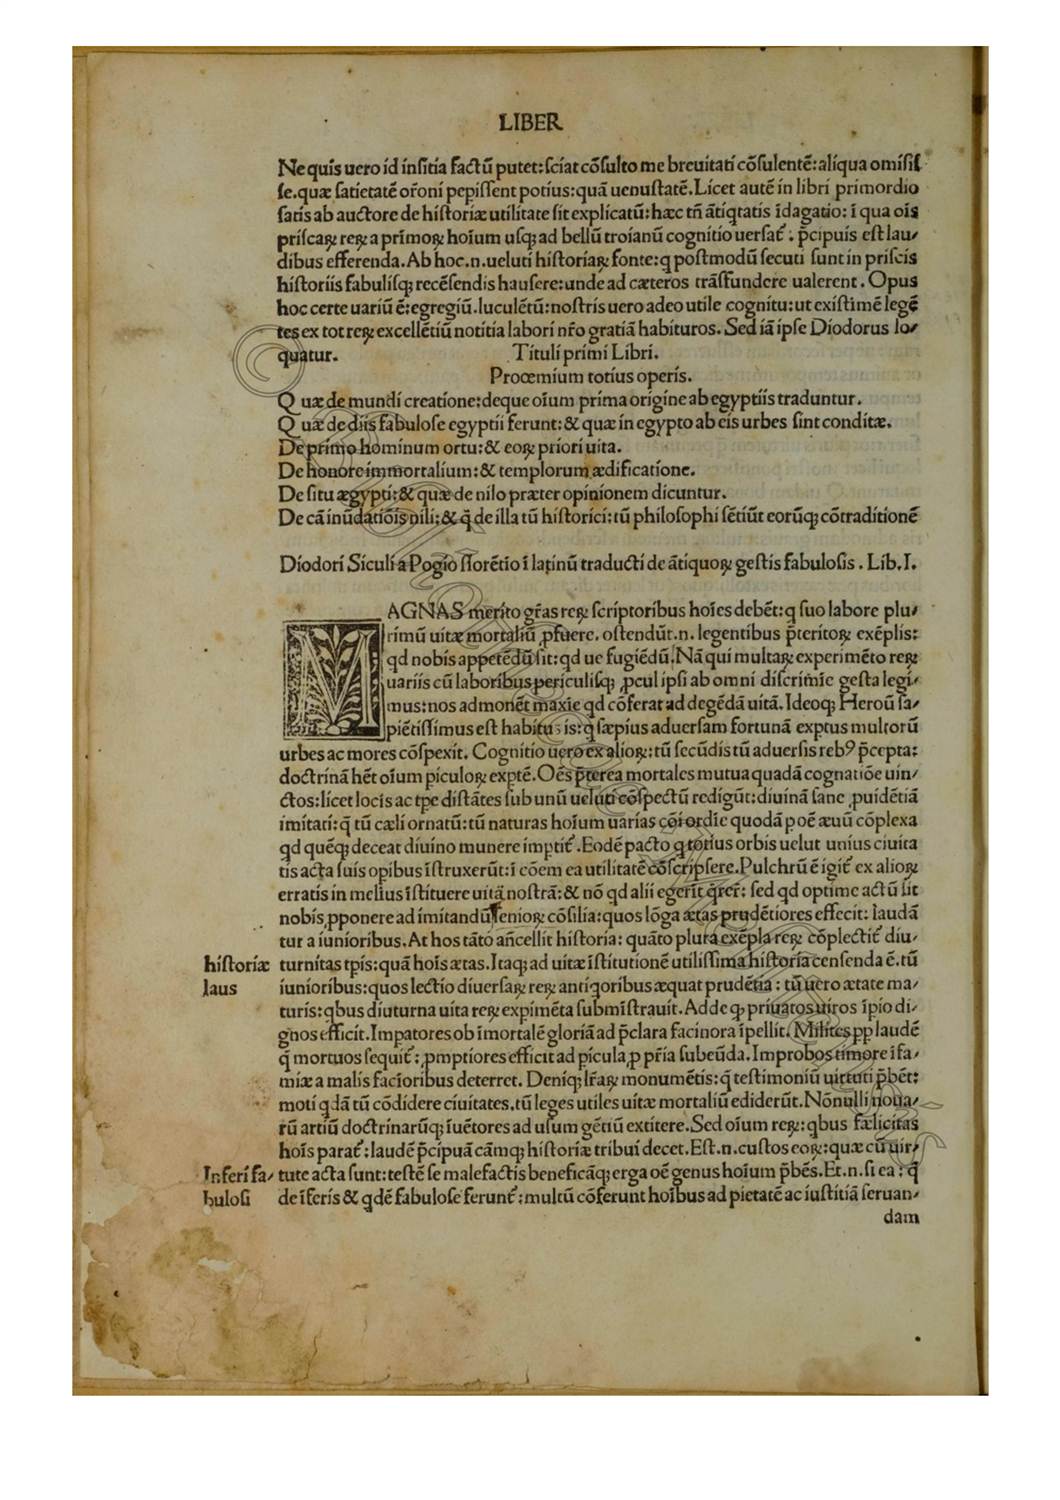 LIBER
Ne quis uero id inſitia factũ putet: ſciat cõſulto me breuitati cõſulentẽ: aliqua omiſiſ
ſe. quæ ſatietatẽ or̃oni pepiſſent potius: quã uenuſtatẽ. Licet autẽ in libri primordio
ſatis ab auctore de hiſtoriæ utilitate ſit explicatũ: hæc tñ ãtiq̃tatis ĩdagatio: ĩ qua oĩs
priſcaꝝ reꝝ a primoꝝ hoĩum uſq; ad bellũ troianũ cognitio uerſat᷑. p̃cipuis eſt lau⸗
dibus efferenda. Ab hoc .n. ueluti hiſtoriaꝝ fonte: q poſtmodũ ſecuti ſunt in priſcis
hiſtoriis fabuliſq; recẽſendis hauſere: unde ad cæteros trãſfundere ualerent. Opus
hoc certe uariũ ẽ: egregiũ. luculẽtũ: noſtris uero adeo utile cognitu: ut exiſtimẽ legẽ
tes ex tot reꝝ excellẽtiũ notitia labori nr̃o gratiã habituros. Sed iã ipſe Diodorus lo⸗
quatur. Tituli primi Libri.
Proœmium totius operis.
Quæ de mundi creatione: deque oĩum prima origine ab egyptiis traduntur.
Quæ de diis fabuloſe egyptii ferunt: & quæ in egypto ab eis urbes ſint conditæ.
De primo hominum ortu: & eoꝝ priori uita.
De honore immortalium: & templorum ædificatione.
De ſitu ægypti: & quæ de nilo præter opinionem dicuntur.
De cã inũdatiõis nili: & q̃ de illa tũ hiſtorici: tũ philoſophi ſẽtiũt eorũq; cõtraditionẽ
Diodori Siculi a Pogio florẽtio ĩ latinũ traducti de ãtiquoꝝ geſtis fabuloſis. Lib. I.
MAGNAS merito gr̃as reꝝ ſcriptoribus hoĩes debẽt: q ſuo labore plu⸗
rimũ uitæ mortaliũ ꝓfuere. oſtendũt .n. legentibus p̃teritoꝝ exẽplis:
qd nobis appetẽdũ ſit: qd ue fugiẽdũ. Nã qui multaꝝ experimẽto reꝝ
uariis cũ laboribus periculiſq; ꝓcul ipſi ab omni diſcrimĩe geſta legi⸗
mus: nos admonẽt maxĩe qd cõferat ad degẽdã uitã. Ideoq; Heroũ ſa⸗
piẽtiſſimus eſt habitus is: q̃ ſæpius aduerſam fortunã exptus multorũ
urbes ac mores cõſpexit. Cognitio uero ex alioꝝ: tũ ſecũdis tũ aduerſis rebꝰ p̃cepta:
doctrinã hẽt oĩum piculoꝝ exptẽ. Oẽs p̃terea mortales mutua quadã cognatiõe uin⸗
ctos: licet locis ac tpe diſtãtes ſub unũ ueluti cõſpectũ redigũt: diuinã ſane ꝓuidẽtiã
imitati: q̃ tũ cæli ornatũ: tũ naturas hoĩum uarias cõi ordĩe quodã p oẽ æuũ cõplexa
qd quẽq; deceat diuino munere imptit᷑. Eodẽ pacto q totius orbis uelut unius ciuita
tis acta ſuis opibus ĩſtruxerũt: ĩ cõem ea utilitatẽ cõſcripſere. Pulchrũ ẽ igit᷑ ex alioꝝ
erratis in melius ĩſtituere uitã noſtrã: & nõ qd alii egerĩt q̃rer̃: ſed qd optime actũ ſit
nobis, pponere ad imitandũ ſenioꝝ cõſilia: quos lõga ætas prudẽtiores effecit: laudã
tur a iunioribus. At hos tãto añcellit hiſtoria: quãto plura exẽpla reꝝ cõplectit᷑ diu⸗
historiæ turnitas tpis: quã hoĩs ætas. Itaq; ad uitæ ĩſtitutionẽ utiliſſima hiſtoria cenſenda ẽ. tũ
laus iunioribus: quos lectio diuerſaꝝ reꝝ antiqoribus æquat prudẽtia: tũ uero ætate ma⸗
turis: qbus diuturna uita reꝝ expimẽta ſubmĩſtrauit. Adde q; priuatos uiros ĩpio di⸗
gnos efficit. Impatores ob ĩmortalẽ gloriã ad p̃clara facinora ĩpellit. Milites pp laudẽ
q̃ mortuos ſequit᷑: ꝓmptiores efficit ad picula ꝓ pr̃ia ſubeũda. Improbos timore ĩfa⸗
miæ a malis facĩoribus deterret. Deniq; lr̃aꝝ monumẽtis: q̃ teſtimoniũ uirtuti p̃bẽt:
moti qdã tũ cõdidere ciuitates. tũ leges utiles uitæ mortaliũ ediderũt. Nõnulli noua⸗
rũ artiũ doctrinarũq; ĩuẽtores ad uſum gẽtiũ extitere. Sed oĩum reꝝ: qbus fælicitas
hoĩs parat᷑: laudẽ p̃cipuã cãmq; hiſtoriæ tribui decet. Eſt .n. cuſtos eoꝝ: quæ cũ uir⸗
Inferi fa⸗ tute acta ſunt: teſtẽ ſe malefactis beneficãq; erga oẽ genus hoĩum p̃bẽs. Et .n. ſi ea: q̃
buloſi de ĩferis & qdẽ fabuloſe ferunt᷑: multũ cõferunt hoĩbus ad pietatẽ ac iuſtitiã ſeruan⸗
dam